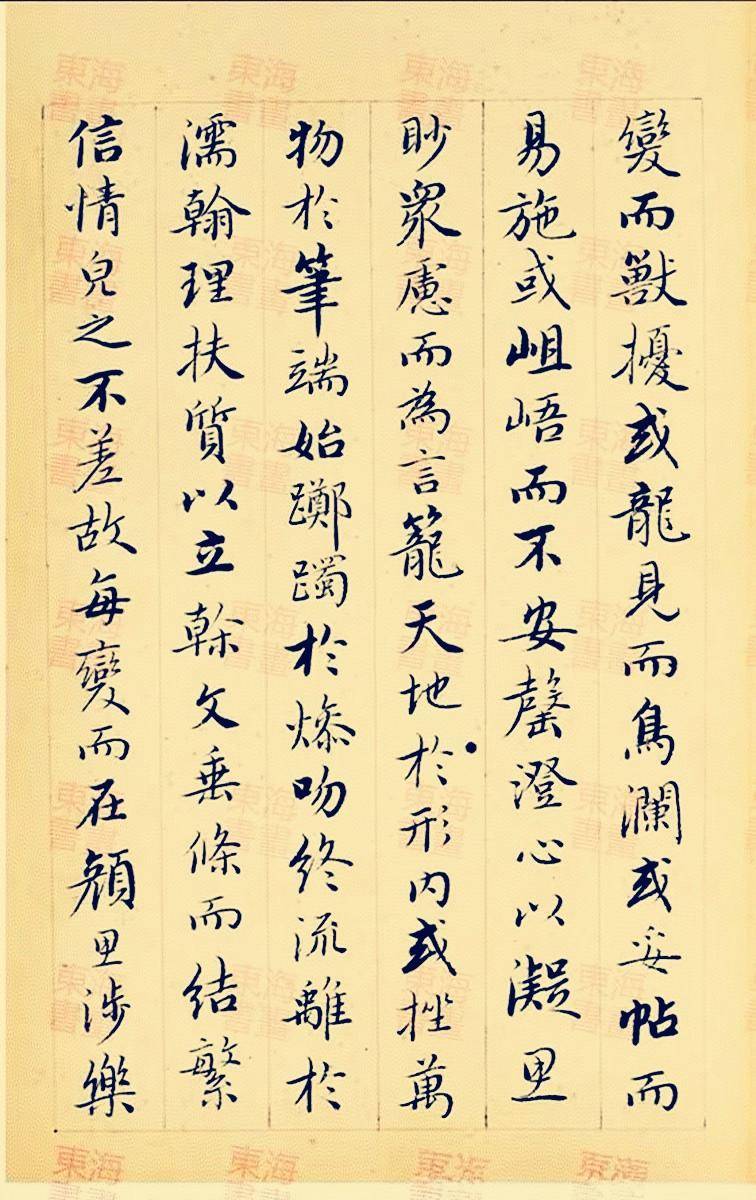 變而獸擾或龍見而鳥瀾或妥帖而
易施或岨峿而不安罄澄心以凝思
眇眾慮而為言籠天地於形內或挫萬
物於筆端始躑躅於燥吻終流離於
濡翰理扶質以立幹文垂條而結繁
信情皃之不差故每變而在顏思涉樂
東海書畫
東海書畫
東海書畫
東海書畫